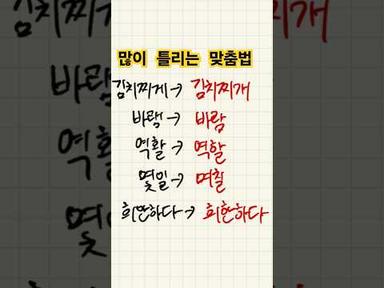 많이 틀리는 맞춤법
김치찌게 → 김치찌개
바램 → 바람
역활 → 역할
몇일 → 며칠
희안하다 → 희한하다